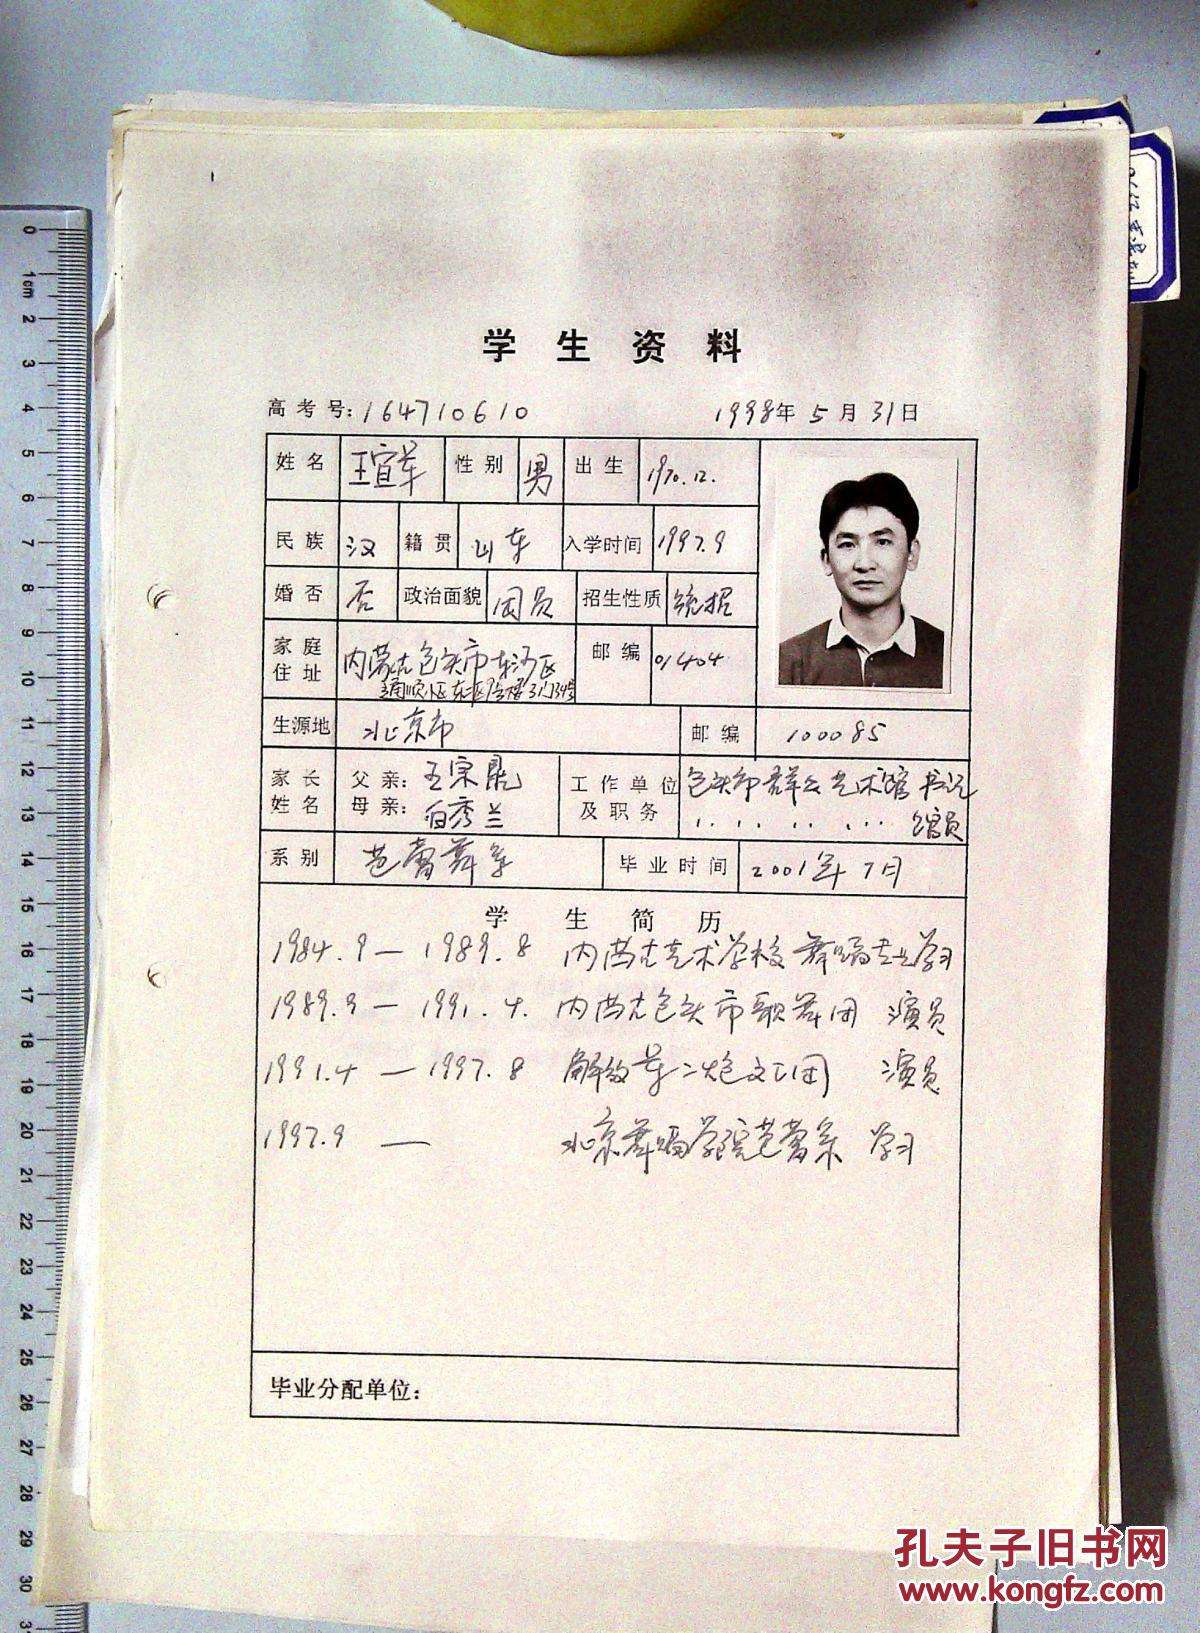 学生资料
高考号:164710610 1998年5月31日
姓名 王宣军 性别 男 出生 1970.12.
民族 汉 籍贯 山东 入学时间 1997.9
婚否 否 政治面貌 团员 招生性质 统招
家庭住址 内蒙古包头市东河区 邮编 01404
生源地 北京市 邮编 100085
家长姓名 父亲: 王宗 工作单位及职务 包头市群众艺术馆 书记
母亲: 白秀兰 馆员
系别 芭蕾舞系 毕业时间 2001年7月
学生简历
1984.9—1989.8 内蒙古艺术学校舞蹈专业学习
1989.9—1991.4. 内蒙古包头市歌舞团 演员
1991.4—1997.8 解放军二炮文工团 演员
1997.9— 北京舞蹈学院芭蕾系 学习
毕业分配单位:
0
1cm
2
3
4
5
6
7
8
9
10
11
12
13
14
15
16
17
18
19
20
21
22
23
24
25
26
27
28
29
30
孔夫子旧书网
www.kongfz.com